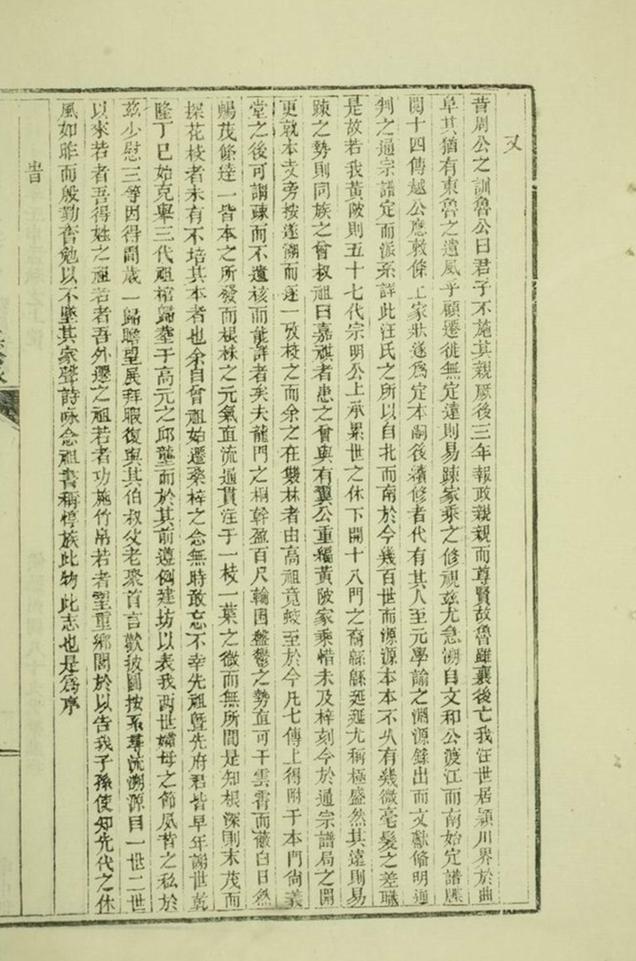 又
昔周公之訓魯公曰君子不施其親厥後三年報政親親而尊賢故魯雖襄後亡我汪世居潁川界於曲
阜其猶有東魯之遺風乎顧遷徙無定遠則易踈家乘之修視茲尤急溯自文和公渡江而南始定譜牒
閱十四傳越公應敕條上家狀遂爲定本嗣後續修者代有其人至元學諭之淵源錄出而文獻脩明通
判之通宗譜定而派系詳此汪氏之所以自北而南於今幾百世而源源本本不失有幾微毫髮之差職
是故若我黃陂則五十七代宗明公上承累世之休下開十八門之裔緜緜延延尤稱極盛然其遠則易
踈之勢則同族之曾叔祖曰嘉祺者患之曾與有翼公重編黃陂家乘惜未及梓刻今於通宗譜局之開
更敦本支旁按遂溯而逐一攷校之而余之在雙林者由高祖竟蛟至於今凡七傳上得附于本門尙義
堂之後可謂踈而不遺核而能詳者矣夫龍門之桐幹盈百尺輪囷盤鬱之勢直可干雲霄而蔽白日然
暢茂條達一皆本之所發而根株之元氣直流通貫注于一枝一葉之微而無所間是知根深則末茂而
探花枝者未有不培其本者也余自曾祖始遷桑梓之念無時敢忘不幸先祖曁先府君皆早年謝世乾
隆丁巳始克舉三代祖棺歸塟于高元之邱壟而於其前遵例建坊以表我兩世孀母之節夙昔之私於
茲少慰三等因得間歲一歸瞻望展拜暇復與其伯叔父老聚首言歡披圖按系尋流溯源自一世二世
以來若者吾得姓之祖若者吾外遷之祖若者功施竹帛若者望重鄉閭於以告我子孫使知先代之休
風如昨而殷勤奮勉以不墜其家聲詩咏念祖書稱惇族此物此志也是爲序
昔